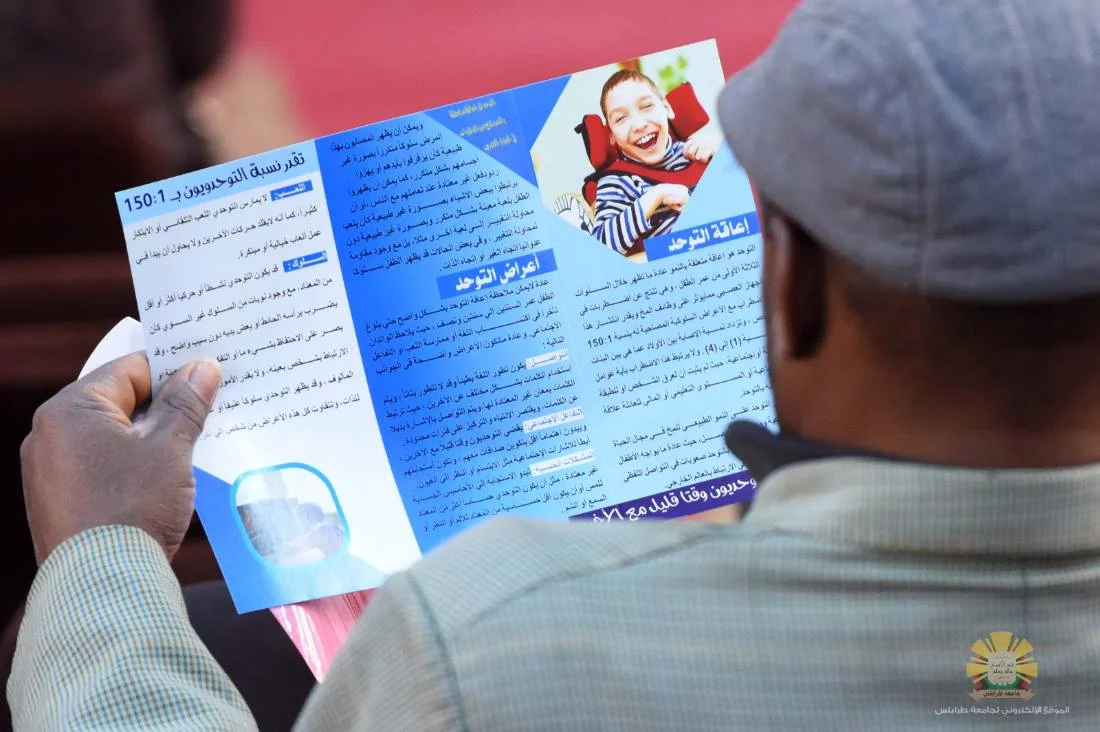 إعاقة التوحد
التوحد هو إعاقة متعلقة بالنمو عادة ما تظهر خلال السنوات
الثلاثة الأولى من عمر الطفل ، وهي تنتج عن اضطرابات في
الجهاز العصبي ممايؤثر على وظائف المخ ويقدر انتشار هذا
الاضطراب مع الأعراض السلوكية المصاحبة له بنسبة 1:150
وتزداد نسبة الإصابة بين الأولاد عما هي بين البنات
(1) إلى (4) ، ولا يرتبط هذا الاضطراب باية عوامل
اجتماعية، حيث لم يثبت أن لعرق الشخص أو للطبقة
أو المستوى التعليمي أو المالي للعائلة علاقة
بالتوحد.
التوحد على النمو الطبيعي للمخ في مجال الحياة
حيث عادة ما يواجه الاطفال
التوحد صعوبات في التواصل اللفظي
الارتباط بالعالم الخارجي.
وحديون وقتا قليل مع
ويمكن أن يظهر المصابون بهذا
المرض سلوكا متكررا بصورة غير
طبيعية كأن يرفرفوا بأيدهم أو يهزوا
أجسامهم بشكل متكرر ، كما يمكن أن يظهروا
ردودفعل غير معتادة عند تعاملهم مع الناس ، أو أن
يرتبطوا ببعض الأشياء بصورة غير طبيعية كأن يلعب
الطفل بلعبة معينة بشكل متكرر وبصورة غير طبيعية دون
محاولة التغيير إلى لعبة أخرى مثلا، مع وجود مقاومة
لمحاولة التغيير ، وفي بعض الحالات قد يظهر الطفل سلوكا
عدوانيا اتجاه الغير أو اتجاه الذات.
أعراض التوحد
عادة لايمكن ملاحظة إعاقة التوحد بشكل واضح حتى بلوغ
الطفل عمر السنتين إلى سنتين ونصف ، حيث يلاحظ الوالدان
تأخرا في اكتساب اللغة أو ممارسة اللعب أو التفاعل
الاجتماعي، وعادة ماتكون الأعراض واضحة في الجوانب
التالية :
التواصل: يكون تطور اللغة بطيئا وقد لا تتطور بتاتا ، ويتم
استخدام الكلمات بشكل مختلف عن الآخرين ، حيث ترتبط
الكلمات بمعان غير المعتادة لها،ويتم التواصل بالإشارة بديلا
عن الكلمات، ويقتصر الانتباه والتركيز على فترات محدودة .
التفاعل الاجتماعي: يقضي التوحديون وقتا قليلا مع الآخرين ،
ويبدون اهتماما أقل بتكوين صداقات معهم ، وتكون استجابتهم
أيضا للاشارات الاجتماعية مثل الابتسام أو النظر الى العيون.
المشكلات الحسية: تبدو الاستجابة إلى الأحاسيس الجسدية
غير معتادة ، مثل أن يكون التوحدي حساسا أكثر من المعتاد
للمس أو أن يكون أقل حساسية من المعتاد للألم أو النظر أو
السمع أو الشم .
تقدر نسبة التوحديون بـ 1:150
اللعب: لا يمارس التوحدي اللعب التلقائي أو الابتكار
كثيرا، كما أنه لايقلد حركات الآخرين ولا يحاول أن يبدا في
عمل العاب خيالية أو مبتكرة.
السلوك : قد يكون التوحدي نشطا أو حركيا أكثر أو أقل
من المعتاد، مع وجود نوبات من السلوك غير السوي كأن
يضرب برأسه الحائط أو بعض يديه دون سبب واضح ، وقد
يصر على الاحتفاظ بشيء ما أو
الارتباط بشخص بعينه، ولا يقدر الأمور
المألوف ، وقد يظهر التوحدي سلوكا عنيفا أو
للذات، وتتفاوت كل هذه الأعراض من شخص إلى
جامعة طرابلس
الموقع الإلكتروني لجامعة طرابلس